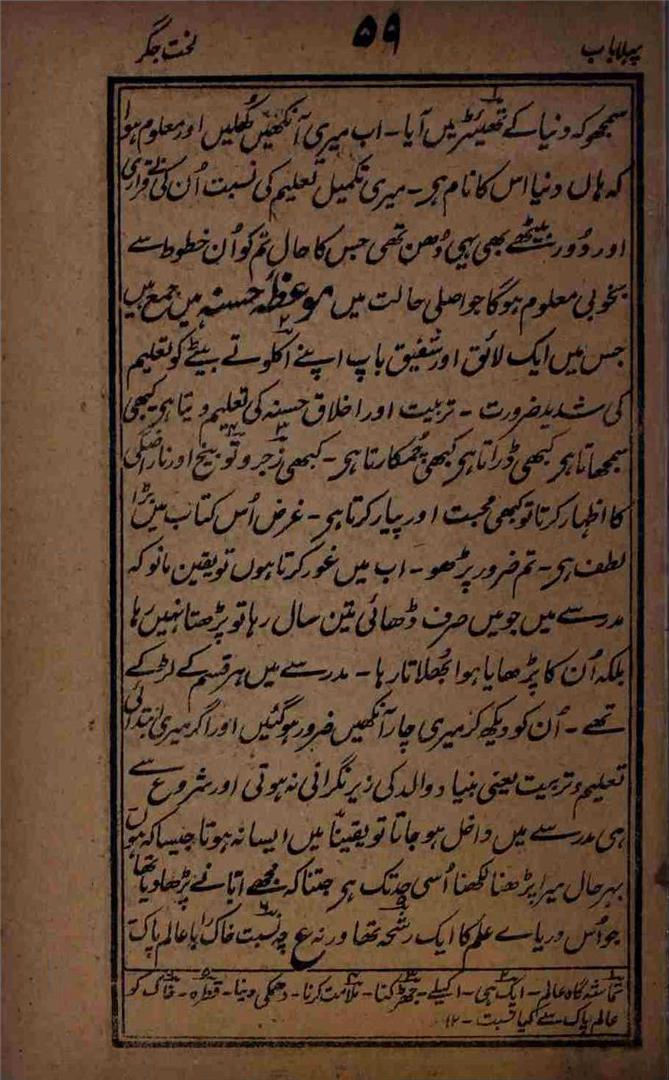 پہلا باب ۵۹ لخت جگر
سمجھو کہ دنیا کے تھیئٹر میں آیا۔ اب میری آنکھیں کھلیں اور معلوم ہوا
کہ ہاں دنیا اس کا نام ہی۔ میری تکمیل تعلیم کی نسبت اُن کی بیقراری
اور دُور بیٹھے بھی یہی دُھن تھی جس کا حال تم کو اُن خطوط سے
بخوبی معلوم ہوگا جو اصلی حالت میں موعظۂ حسنہ میں جمع ہیں
جس میں ایک لائق اور شفیق باپ اپنے اکلوتے بیٹے کو تعلیم
کی شدید ضرورت۔ تربیت اور اخلاق حسنہ کی تعلیم دیتا ہی۔ کبھی
سمجھاتا ہی کبھی ڈراتا ہی کبھی چمکارتا ہی۔ کبھی زجر و توبیخ اور ناراضگی
کا اظہار کرتا تو کبھی محبت اور پیار کرتا ہی۔ غرض اُس کتاب میں بڑا
لطف ہی۔ تم ضرور پڑھو۔ اب میں غور کرتا ہوں تو یقین مانو کہ
مدرسے میں جو میں صرف ڈھائی تین سال رہا تو پڑھتا نہیں رہا
بلکہ اُن کا پڑھایا ہوا بھلاتا رہا۔ مدرسے میں ہر قسم کے لڑکے
تھے۔ اُن کو دیکھ کر میری چار آنکھیں ضرور ہوگئیں اور اگر میری ابتدائی
تعلیم و تربیت یعنی بنیاد والد کی زیر نگرانی نہ ہوتی اور شروع سے
ہی مدرسے میں داخل ہو جاتا تو یقیناً میں ایسا نہ ہوتا جیسا کہ ہوں
بہر حال میرا پڑھنا لکھنا اُسی حد تک ہی جتنا کہ مجھے ابّا نے پڑھا دیا تھا
جو اُس دریاے علم کا ایک رشحہ تھا ورنہ ع چہ نسبت خاک را با عالم پاک
۱ تماشہ گاہ عالم۔ ۲ ایک ہی۔ اکیلے۔ ۳ جھڑکنا۔ ۴ ملامت کرنا۔ دھمکی دینا۔ ۵ قطرہ۔ ۶ خاک کو
عالم پاک سے کیا نسبت۔ ۱۲